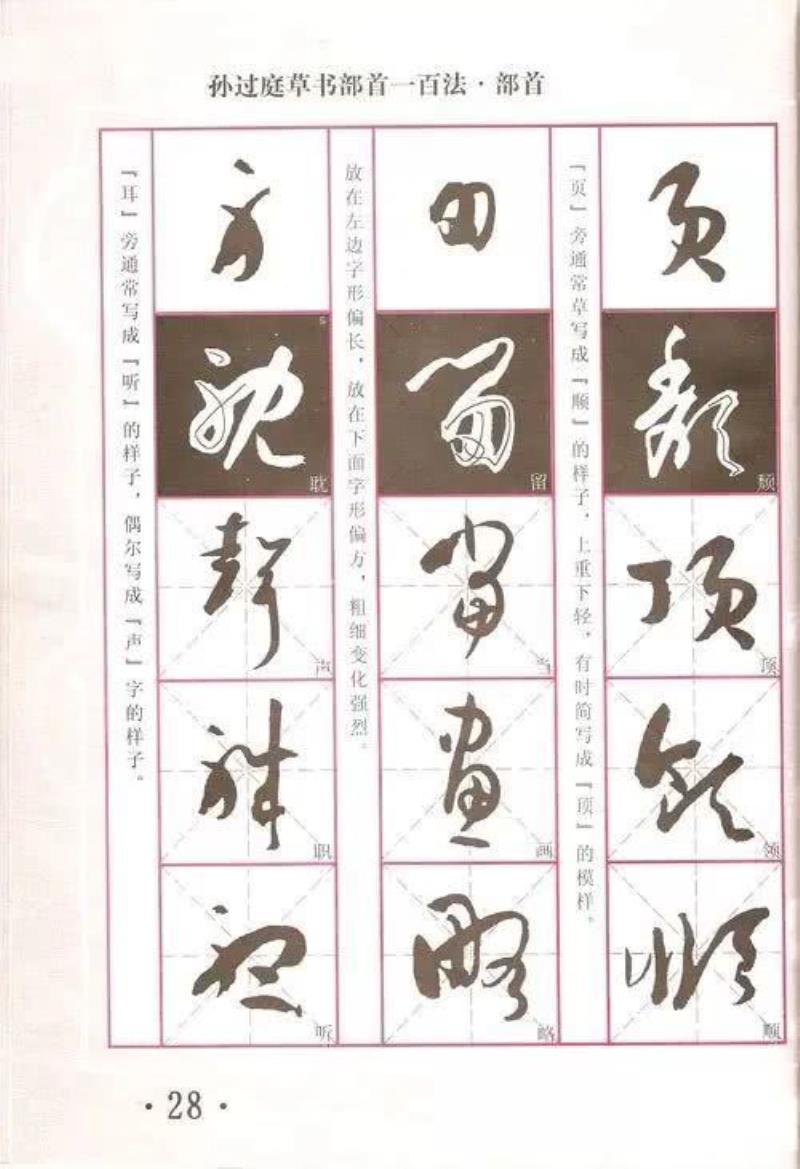 孙过庭草书部首一百法·部首
「页」旁通常草写成「顺」的样子，上重下轻，有时简写成「顶」的模样。
颓
顶
领
顺
放在左边字形偏长，放在下面字形偏方，粗细变化强烈。
田
留
当
画
略
「耳」旁通常写成「听」的样子，偶尔写成「声」字的样子。
耽
声
职
听
·28·